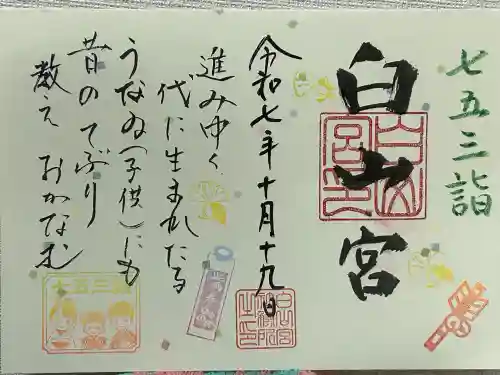 七五三詣
白山宮
令和七年十月十九日
進みゆく
代に生まれたる
うなゐ(子供)にも
昔のてぶり
教えおかなむ
七五三詣